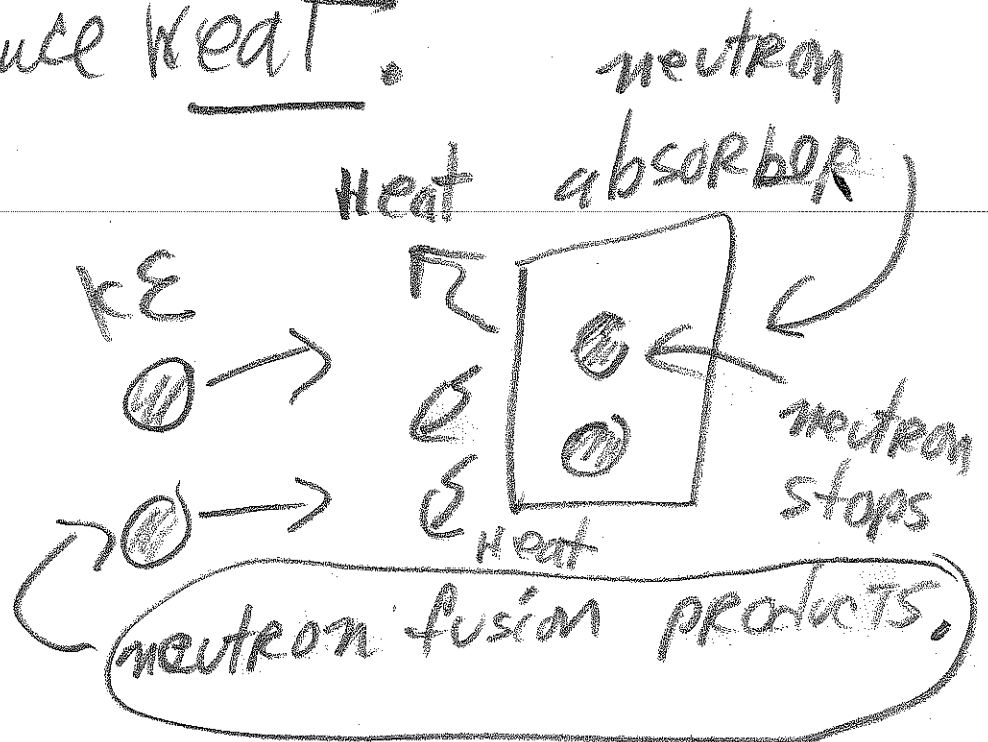 uce Heat.
neutron
absorbor
Heat
KE
neutron
stops
Heat
neutron fusion products.